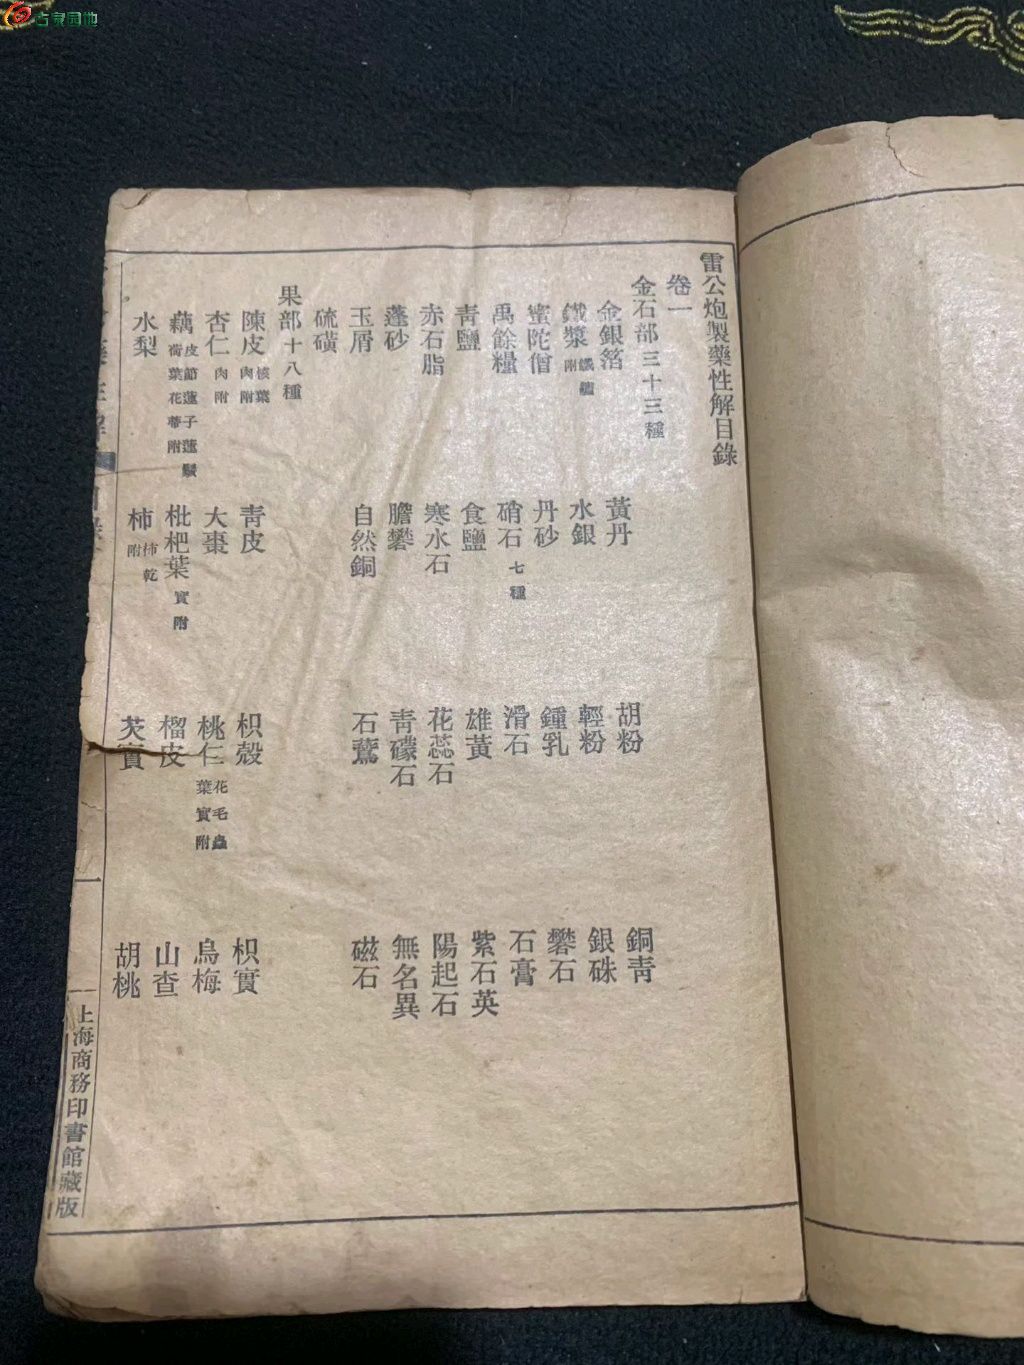 古家园地
雷公炮製藥性解目錄
卷一
金石部三十三種
金銀箔 黃丹 胡粉 銅青
鐵漿鐵鏽附 水銀 輕粉 銀硃
蜜陀僧 丹砂 鍾乳 礬石
禹餘糧 硝石七種 滑石 石膏
青鹽 食鹽 雄黃 紫石英
赤石脂 寒水石 花蕊石 陽起石
蓬砂 膽礬 青礞石 無名異
玉屑 自然銅 石鷰 磁石
硫磺
果部十八種
陳皮核葉肉附 青皮 枳殼 枳實
杏仁肉附 大棗 桃仁花毛蟲葉實附 烏梅
藕皮節蓮子蓮鬚荷葉花蒂附 枇杷葉實附 榴皮 山查
水梨 柿柿乾附 芡實 胡桃
一
上海商務印書館藏版